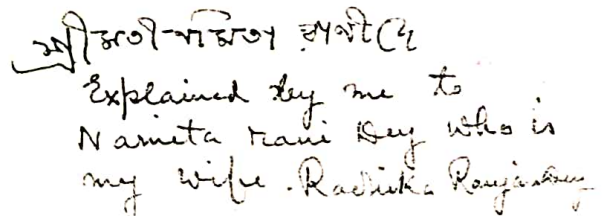 শ্রীমতী নমিতা রাণী দে
Explained by me to
Namita Rani Dey who is
my wife. Radhika Ranjan Dey